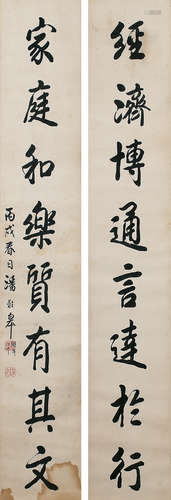 經濟博通言達於行
家庭和樂質有其文
丙戌春日潘齡皋